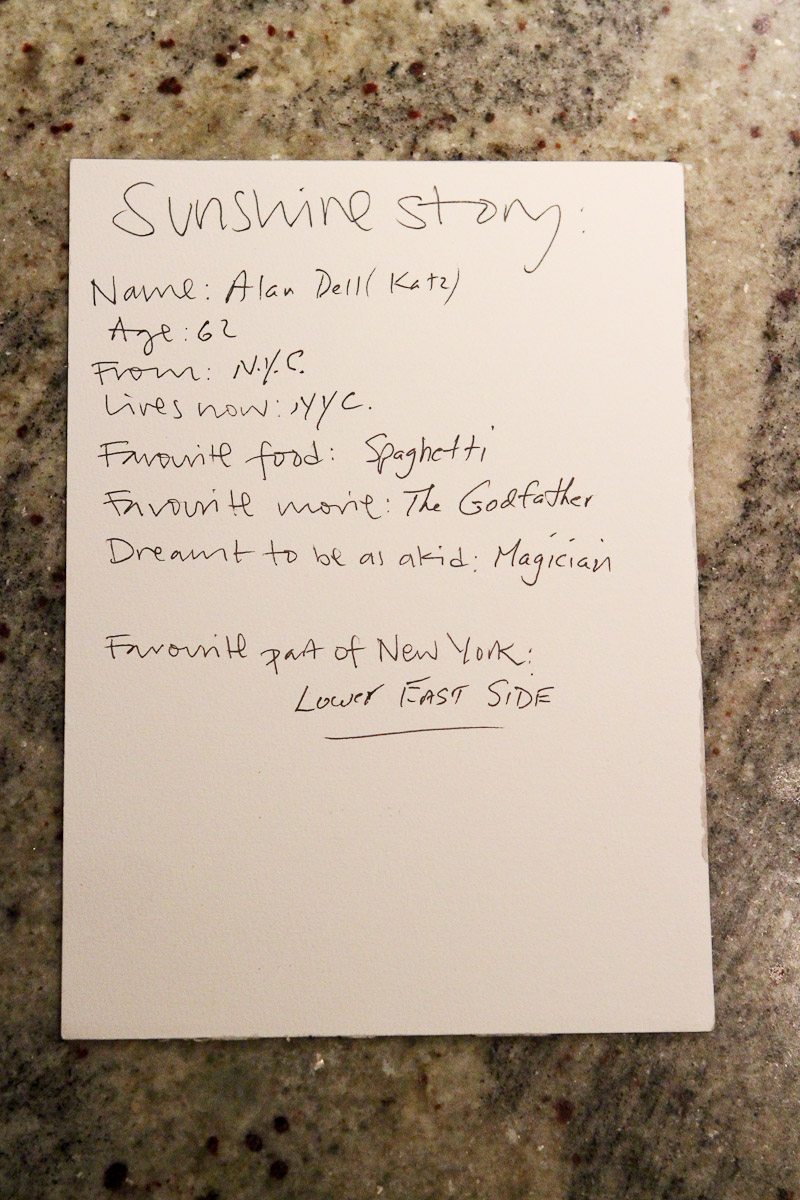 Sunshine story:
Name: Alan Dell (Katz)
Age: 62
From: N.Y.C.
Lives now: NYC.
Favourite food: Spaghetti
Favourite movie: The Godfather
Dreamt to be as a kid: Magician
Favourite part of New York:
Lower EAST SIDE